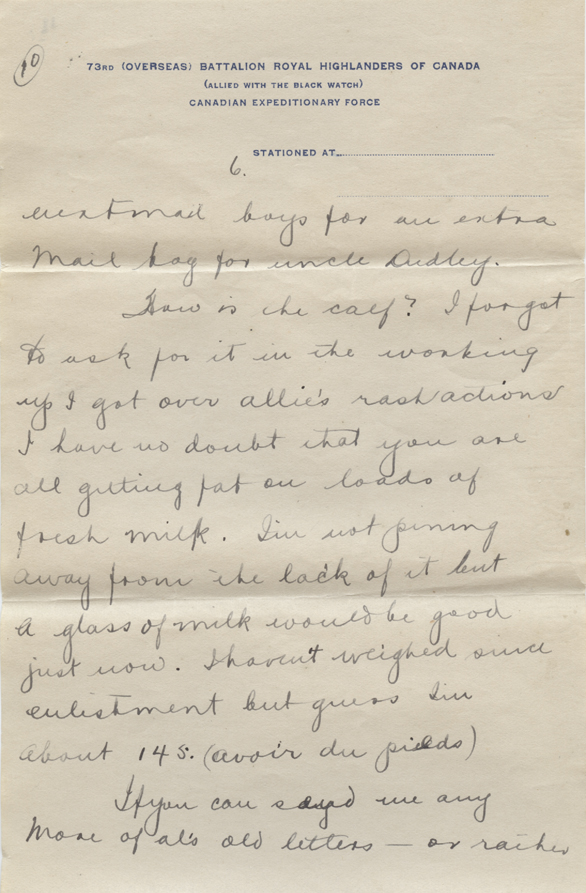 10
73RD (OVERSEAS) BATTALION ROYAL HIGHLANDERS OF CANADA
(ALLIED WITH THE BLACK WATCH)
CANADIAN EXPEDITIONARY FORCE
STATIONED AT
6.
boys for an extra
Mail bag for uncle Dudley.
How is the calf? I forgot
to ask for it in the working
up I got over allie's rash actions
I have no doubt that you are
all getting fat on loads of
fresh milk. I'm not pining
away from the lack of it but
a glass of milk would be good
just now. I haven't weighed since
enlistment but guess I'm
about 145. (avoir du pieds)
If you can send me any
More of al's old letters — or rather